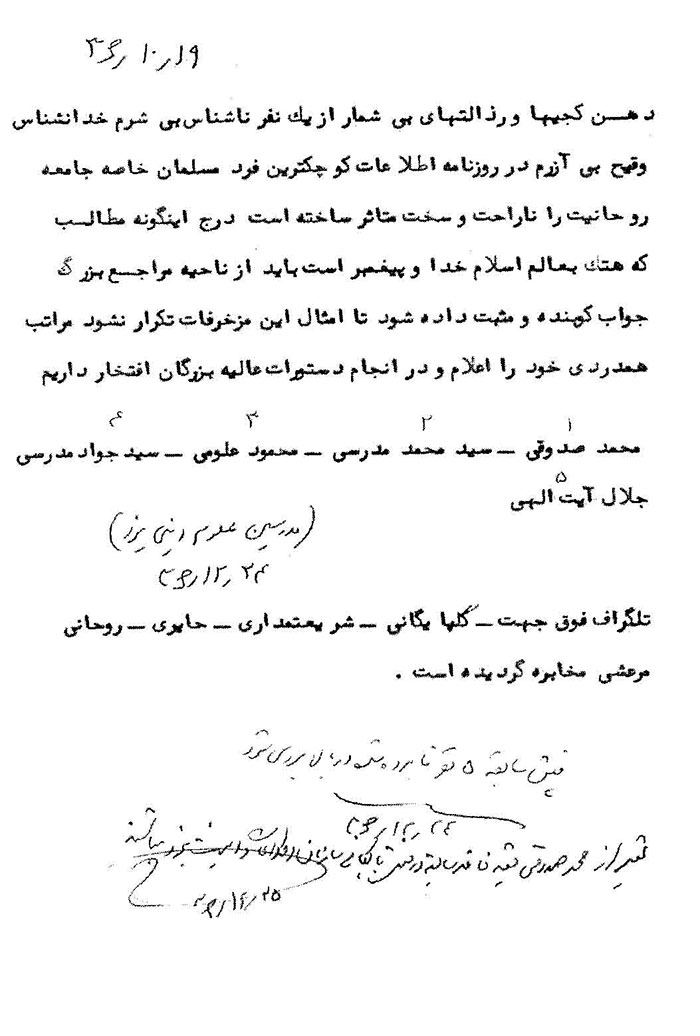 ۱۹ر۱۰ر۳۶
دهـن کجیها و رذالتهای بی شمار از یك نفر ناشناس بی شرم خدانشناس
وقیح بی آزرم در روزنامه اطلاعات کوچکترین فرد مسلمان خاصه جامعه
روحانیت را ناراحت و سخت متاثر ساخته است درج اینگونه مطالب
که هتك بعالم اسلام خدا و پیغمبر است باید از ناحیه مراجع بزرگ
جواب کوبنده و مثبت داده شود تا امثال این مزخرفات تکرار نشود مراتب
همدردی خود را اعلام و در انجام دستورات عالیه بزرگان افتخار داریم
۱ ۲ ۳ ۴
محمد صدوقی – سید محمد مدرسی – محمود علومی – سید جواد مدرسی
۵
جلال آیت الهی
(مدرسین علوم دینی یزد)
تلگراف فوق جهت – گلپایگانی – شریعتمداری – حایری – روحانی
مرعشی مخابره گردیده است .
سابقه ۵ نفر نامبرده شده در بالا بررسی شود
بغیر از محمد صدوقی بقیه فاقد سابقه در